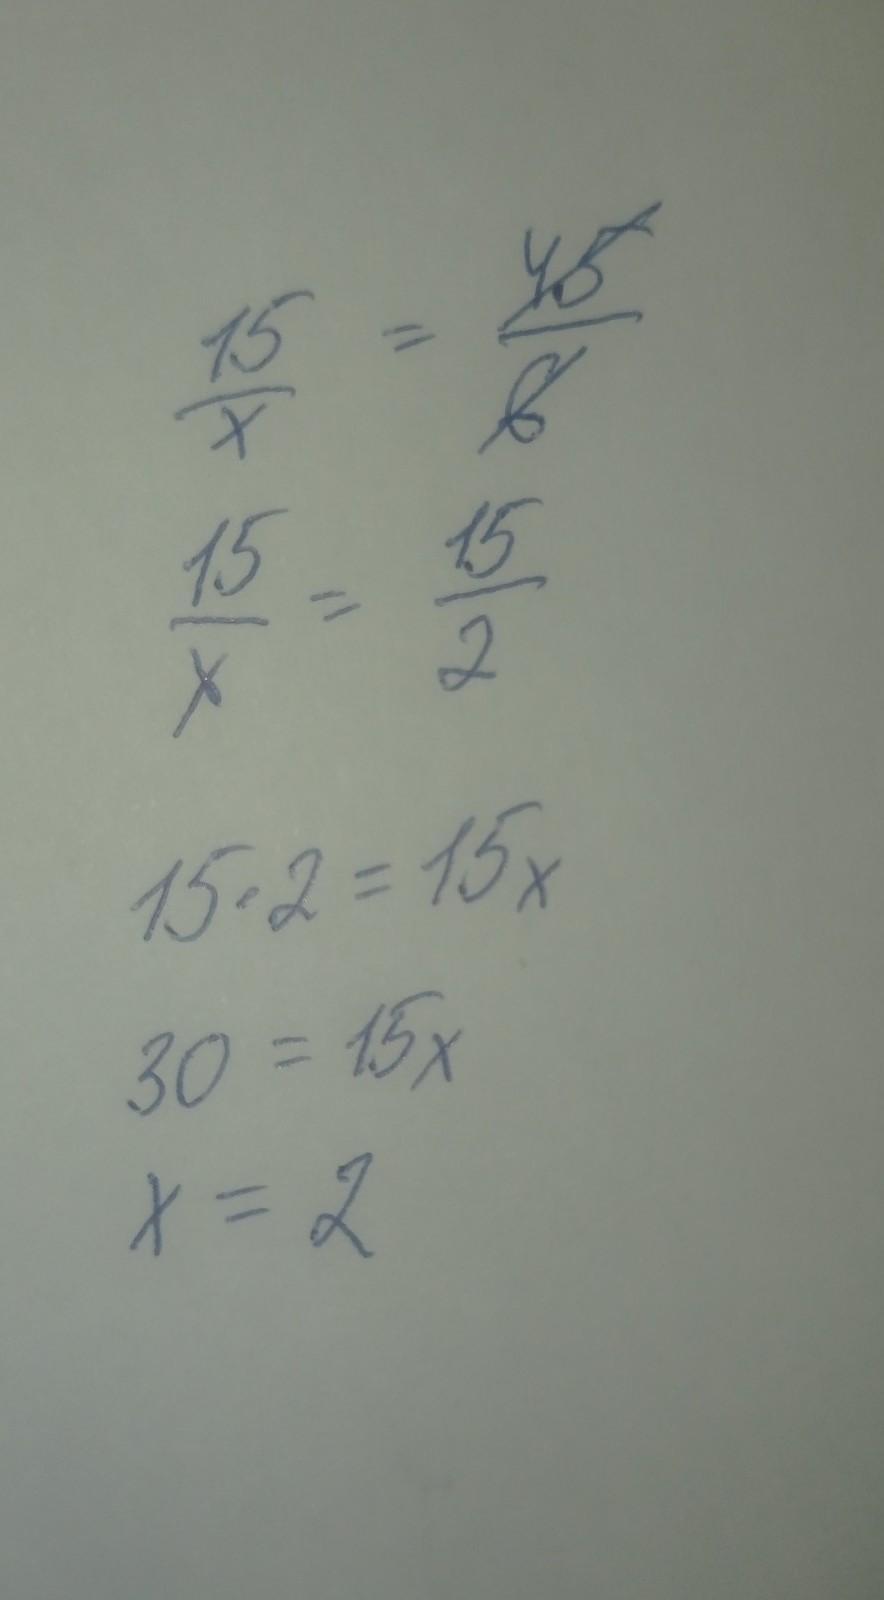 15/x = 45/6
15/x = 15/2
15·2 = 15x
30 = 15x
x = 2